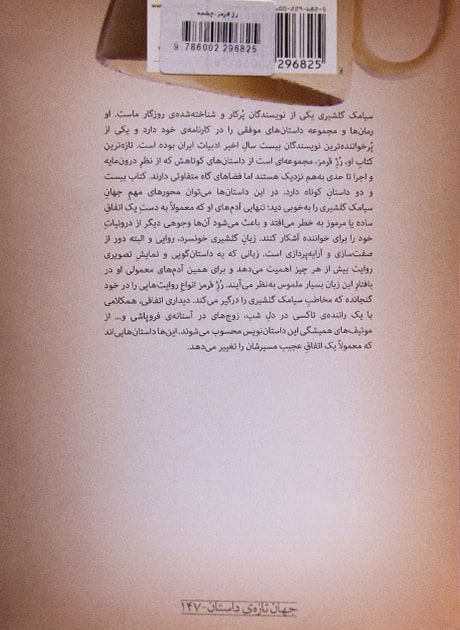 رژ قرمز-چشمه
9 786002 296825
296825
سیامک گلشیری یکی از نویسندگان پُرکار و شناخته‌شده‌ی روزگار ماست. او
رمان‌ها و مجموعه داستان‌های موفقی را در کارنامه‌ی خود دارد و یکی از
پُرخواننده‌ترین نویسندگان بیست سالِ اخیر ادبیات ایران بوده است. تازه‌ترین
کتاب او، رژ قرمز، مجموعه‌ای است از داستان‌های کوتاهش که از نظر درون‌مایه
و اجرا تا حدی به‌هم نزدیک هستند اما فضاهای گاه متفاوتی دارند. کتاب بیست
و دو داستانِ کوتاه دارد. در این داستان‌ها می‌توان محورهای مهم جهانِ
سیامک گلشیری را به‌خوبی دید؛ تنهایی آدم‌های او که معمولاً به دستِ یک اتفاقِ
ساده یا مرموز به خطر می‌افتد و باعث می‌شود آن‌ها وجوهی دیگر از درونیاتِ
خود را برای خواننده آشکار کنند. زبانِ گلشیری خونسرد، روایی و البته دور از
صفت‌سازی و آرایه‌پردازی است. زبانی که به داستان‌گویی و نمایش تصویری
روایت بیش از هر چیز اهمیت می‌دهد و برای همین آدم‌های معمولی او در
بافتارِ این زبان بسیار ملموس به‌نظر می‌آیند. رژ قرمز انواع روایت‌هایی را در خود
گنجانده که مخاطبِ سیامک گلشیری را درگیر می‌کند. دیداری اتفاقی، همکلامی
با یک راننده‌ی تاکسی در دلِ شب، زوج‌های در آستانه‌ی فروپاشی و... از
موتیف‌های همیشگی این داستان‌نویس محسوب می‌شوند. این‌ها داستان‌هایی‌اند
که معمولاً یک اتفاقِ عجیب مسیرشان را تغییر می‌دهد.
جهان تازه‌ی داستان-۱۴۷